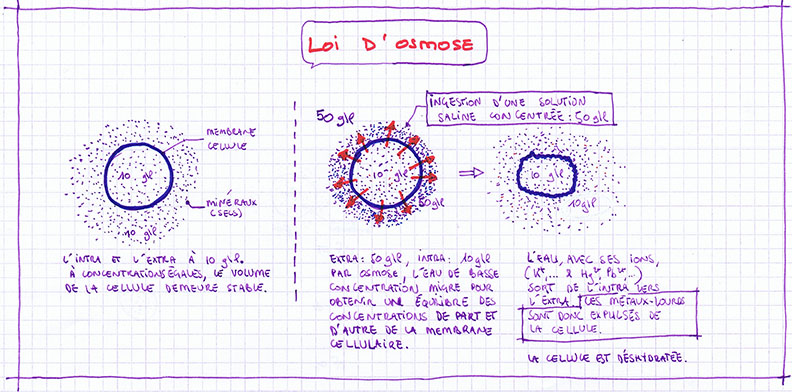 LOI D'OSMOSE
MEMBRANE
CELLULE
10 g/l
MINÉRAUX
(SELS)
10 g/l
L'INTRA ET L'EXTRA À 10 g/l.
À CONCENTRATIONS ÉGALES, LE VOLUME
DE LA CELLULE DEMEURE STABLE.
50 g/l
INGESTION D'UNE SOLUTION
SALINE CONCENTRÉE : 50 g/l
10 g/l
50 g/l
EXTRA : 50 g/l, INTRA : 10 g/l
PAR OSMOSE, L'EAU DE BASSE
CONCENTRATION MIGRE POUR
OBTENIR UNE ÉQUILIBRE DES
CONCENTRATIONS DE PART ET
D'AUTRE DE LA MEMBRANE
CELLULAIRE.
10 g/l
10 g/l
L'EAU, AVEC SES IONS,
(K⁺,... & Hg²⁺, Pb²⁺...)
SORT DE L'INTRA VERS
L'EXTRA. CES MÉTAUX-LOURDS
SONT DONC EXPULSÉS DE
LA CELLULE.
LA CELLULE EST DÉSHYDRATÉE.